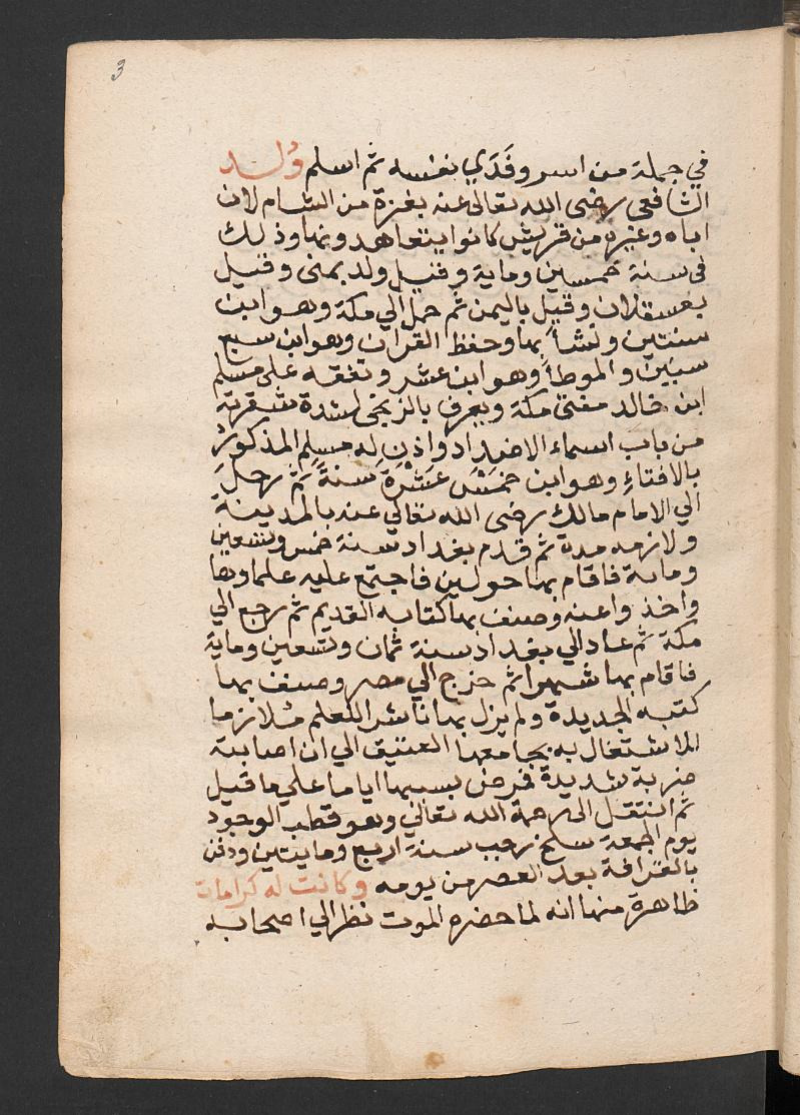 3
في جملة من اسر وفَدَي نفسه ثم اسلم وُلـــد
الشافعي رضى الله تعالى عنه بغزة من الشام لان
اباه وغيره من قريش كانوا يتعاهدونها وذلك
فى سنة خمسين وماية وقيل ولد بمنى وقيل
بعسقلان وقيل باليمن ثم حمل الي مكة وهو ابن
سنتين ونشأ بها وحفظ القران وهو ابن سبع
سنين والموطأ وهو ابن عشر وتفقه على مسلم
ابن خالد مفتى مكة ويعرف بالزنجى لشدة شقرته
من باب اسماء الاضداد واذن له مسلم المذكور
بالافتاءِ وهو ابن خمسَ عَشْرَةَ سنةً ثم رحل
الي الامام مالك رضى الله تعالي عنه بالمدينة
ولازمه مدة ثم قدم بغداد سنة خمس وتسعين
وماية فاقام بها حولين فاجتمع عليه علماوها
واخذوا عنه وصنف بها كتابه القديم ثم رجع الي
مكة ثم عاد الي بغداد سنة ثمان وتسعين وماية
فاقام بها شهرا ثم خرج الي مصر وصنف بها
كتبه الجديدة ولم يزل بها ناشرا للعلم مُلازما
للاشتغال به بجامعها العتيق الي ان اصابته
ضربة شديدة فمرض بسببها اياما علي ما قيل
ثم انتقل الى رحمة الله تعالي وهو قطب الوجود
يوم الجمعة سلخ رجب سنة اربع ومايتين ودفن
بالقرافة بعد العصر من يومه وكانت له كرامات
ظاهرة منها انه لما حضره الموت نظر الي اصحابه